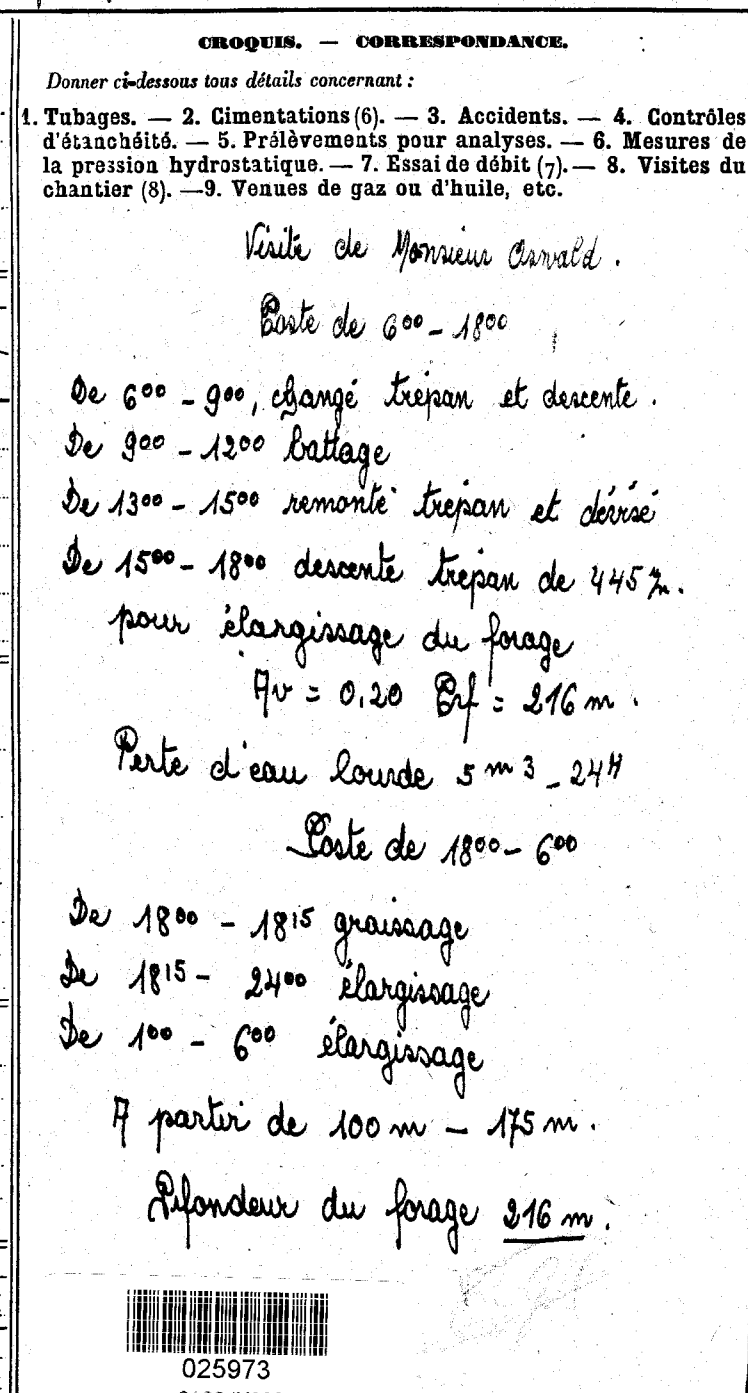 CROQUIS. — CORRESPONDANCE.
Donner ci-dessous tous détails concernant :
1. Tubages. — 2. Cimentations (6). — 3. Accidents. — 4. Contrôles
d'étanchéité. — 5. Prélèvements pour analyses. — 6. Mesures de
la pression hydrostatique. — 7. Essai de débit (7). — 8. Visites du
chantier (8). — 9. Venues de gaz ou d'huile, etc.
Visite de Monsieur Oswald.
Poste de 6⁰⁰ - 18⁰⁰
De 6⁰⁰ - 9⁰⁰, changé trépan et descente.
De 9⁰⁰ - 12⁰⁰ battage
De 13⁰⁰ - 15⁰⁰ remonté trépan et dévisé
De 15⁰⁰ - 18⁰⁰ descente trepan de 445 m/m.
pour élargissage du forage
Av = 0,20 Prf = 216 m.
Perte d'eau lourde 5 m3 - 24H
Poste de 18⁰⁰ - 6⁰⁰
De 18⁰⁰ - 18¹⁵ graissage
De 18¹⁵ - 24⁰⁰ élargissage
De 1⁰⁰ - 6⁰⁰ élargissage
A partir de 100 m - 175 m.
Prifondeur du forage 216 m.
025973